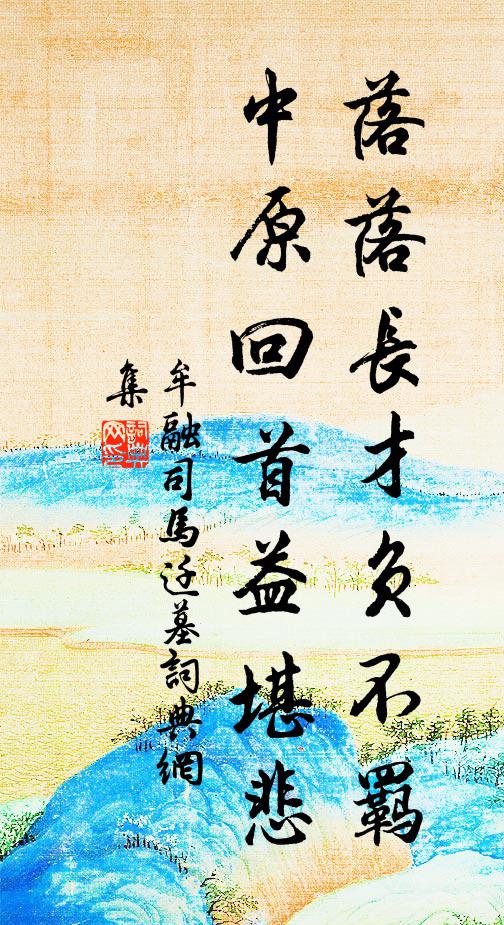 落落長才負不羈
中原回首益堪悲
牟融司馬迁墓詞典網
集